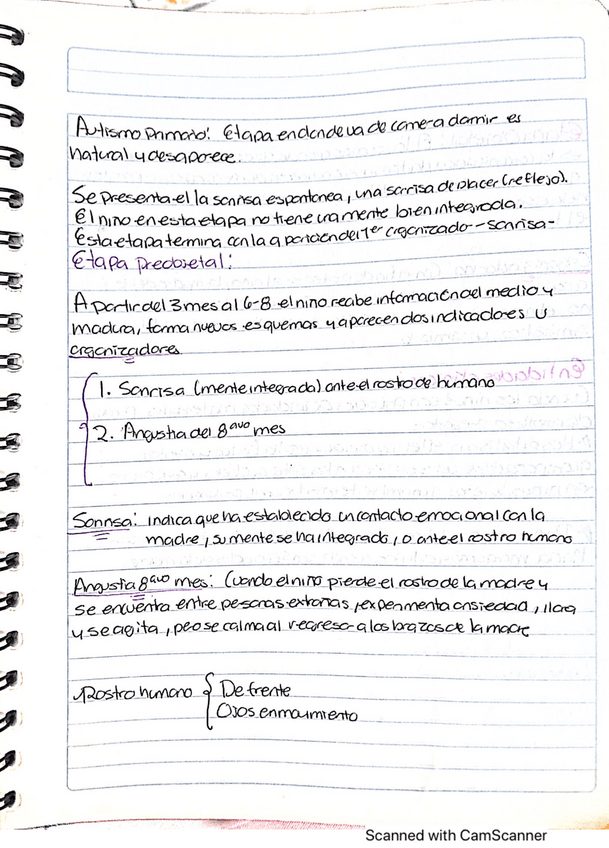 Autismo Primario: Etapa en donde va de comer a dormir es
natural y desaparece.
Se presenta el la sonrisa espontanea, una sonrisa de placer (reflejo).
El niño en esta etapa no tiene una mente bien integrada.
Esta etapa termina con la aparición del 1er organizado - sonrisa -
Etapa Preobjetal:
A partir del 3 mes al 6-8 el niño recibe información del medio y
madura, forma nuevos esquemas y aparecen dos indicadores u
organizadores
1. Sonrisa (mente integrada) ante el rostro de humano
2. Angustia del 8avo mes
Sonrisa: indica que ha establecido un contacto emocional con la
madre, su mente se ha integrado, o ante el rostro humano
Angustia 8avo mes: Cuando el niño pierde el rostro de la madre y
se encuentra entre personas extrañas, experimenta ansiedad, llora
y se agita, pero se calma al regresar a los brazos de la madre
Rostro humano { De frente
Ojos en movimiento
Scanned with CamScanner